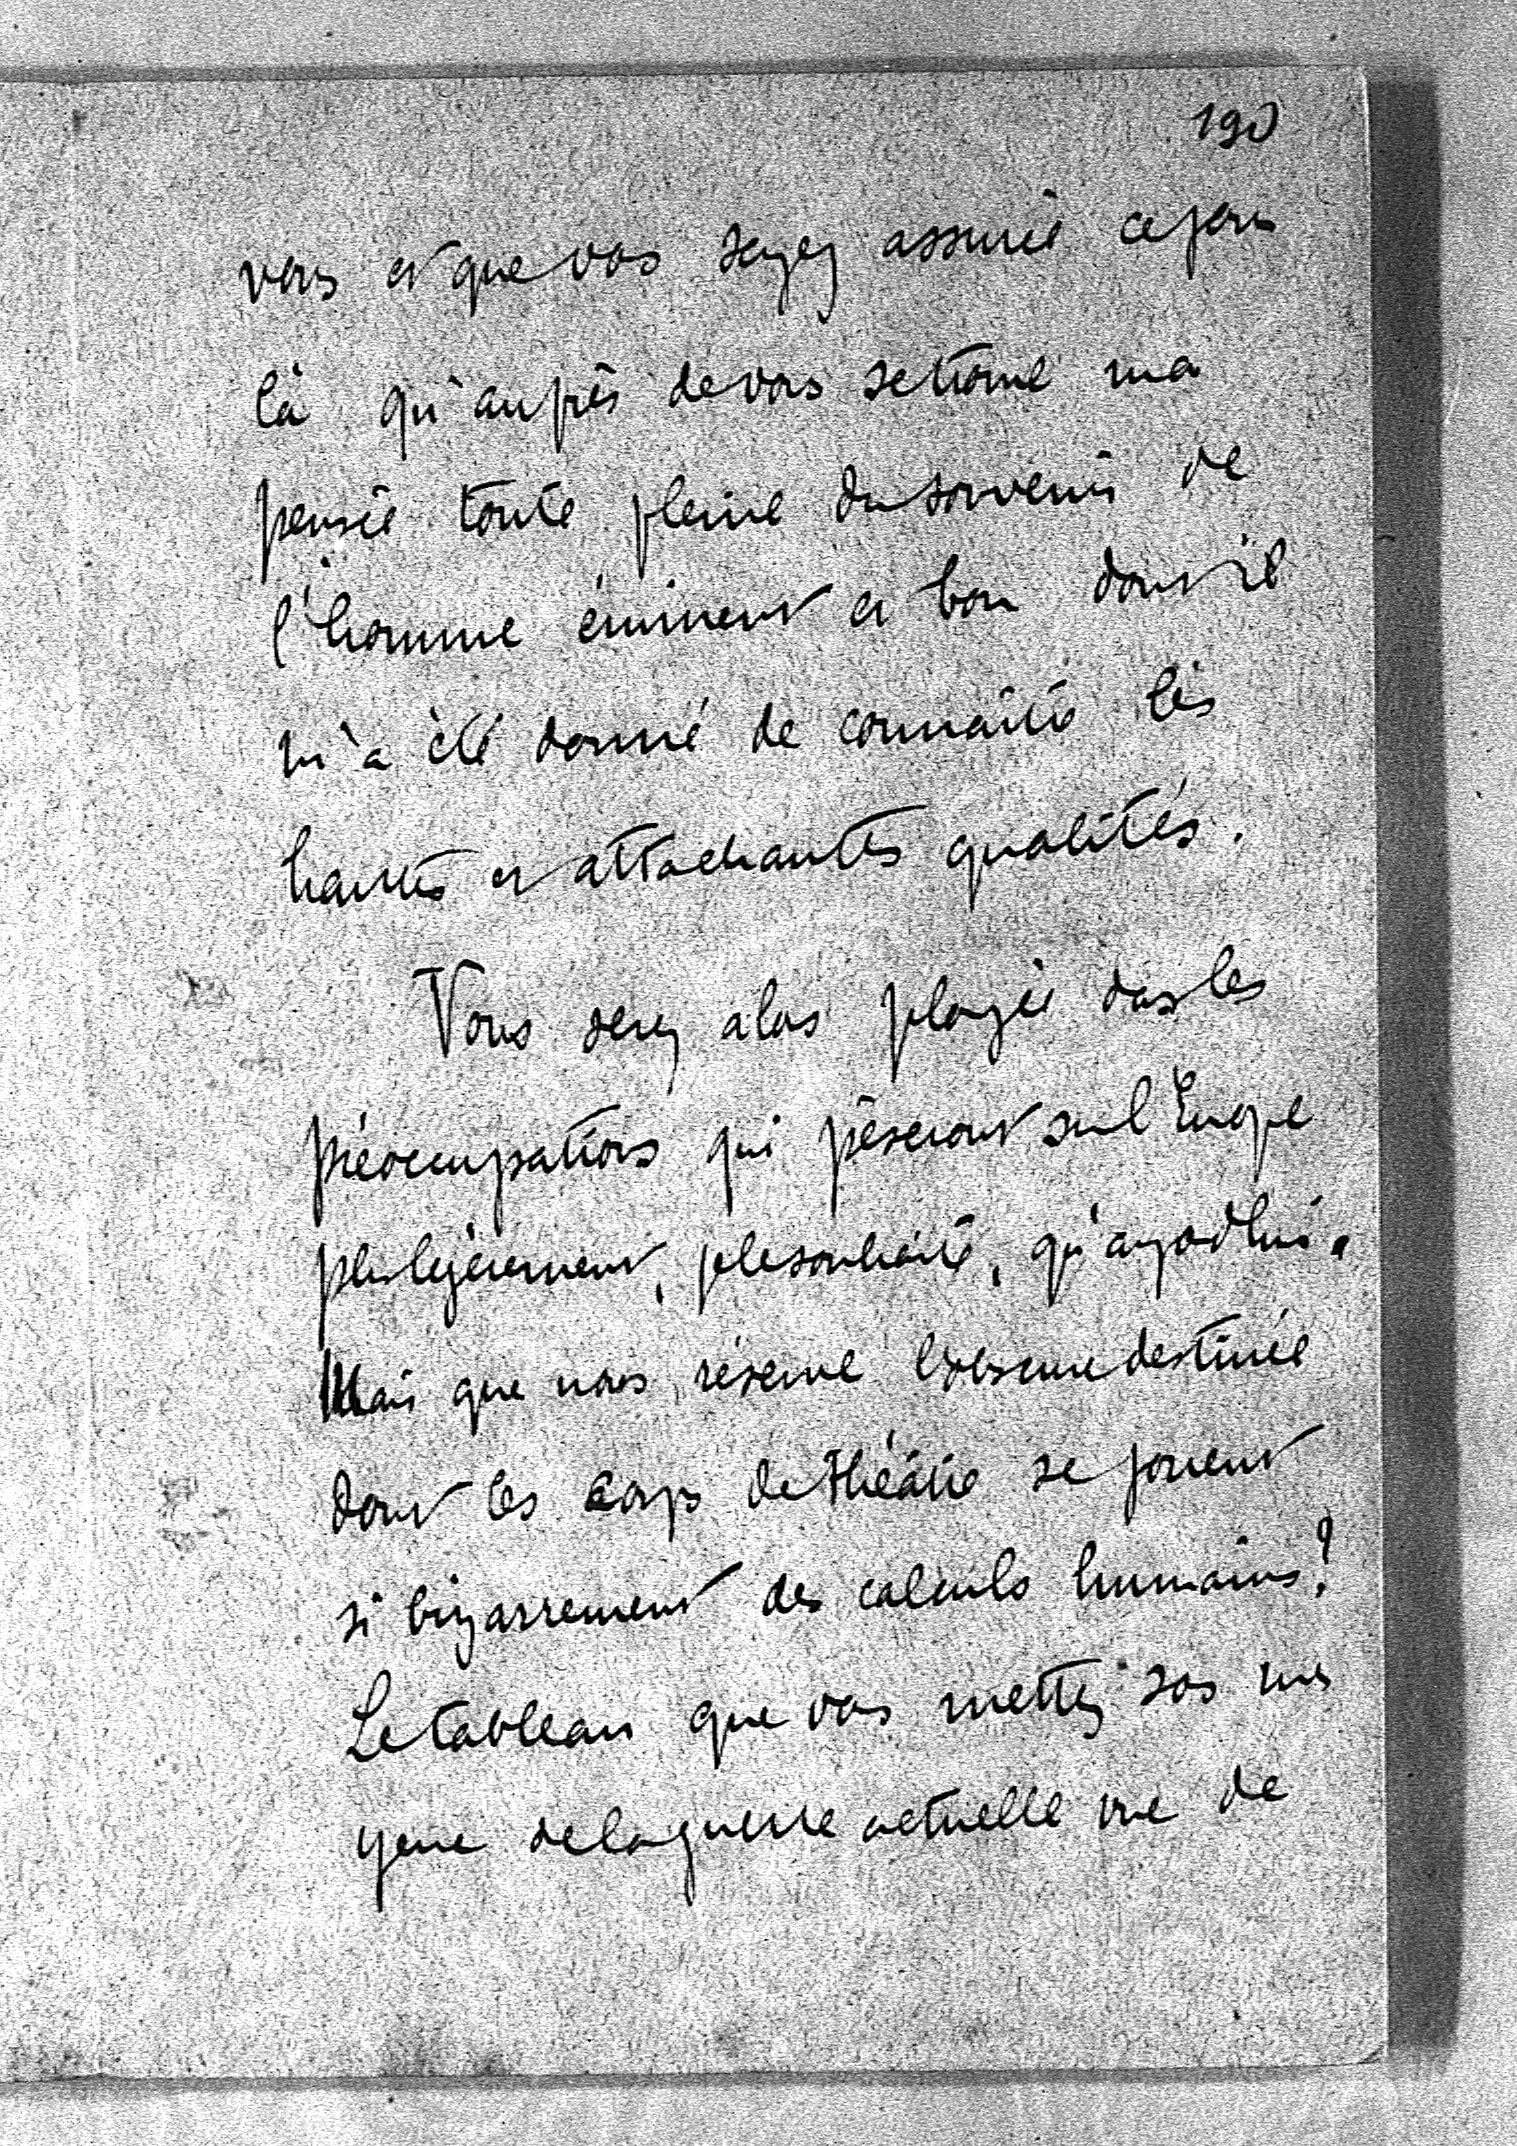 190
vous et que vous soyez assurée ce jour
là qu'auprès de vous se trouve ma
pensée toute pleine du souvenir de
l'homme éminent et bon dont il
m'a été donné de connaître les
hautes et attachantes qualités.
Vous serez alors plongée dans les
préoccupations qui pèseront sur l'Europe
plus légèrement, je le souhaite, qu'aujourd'hui.
Mais que nous réserve l'obscure destinée
dont les coups de théâtre se jouent
si bizarrement des calculs humains?
Le tableau que vous mettez sous mes
yeux de la guerre actuelle vue de